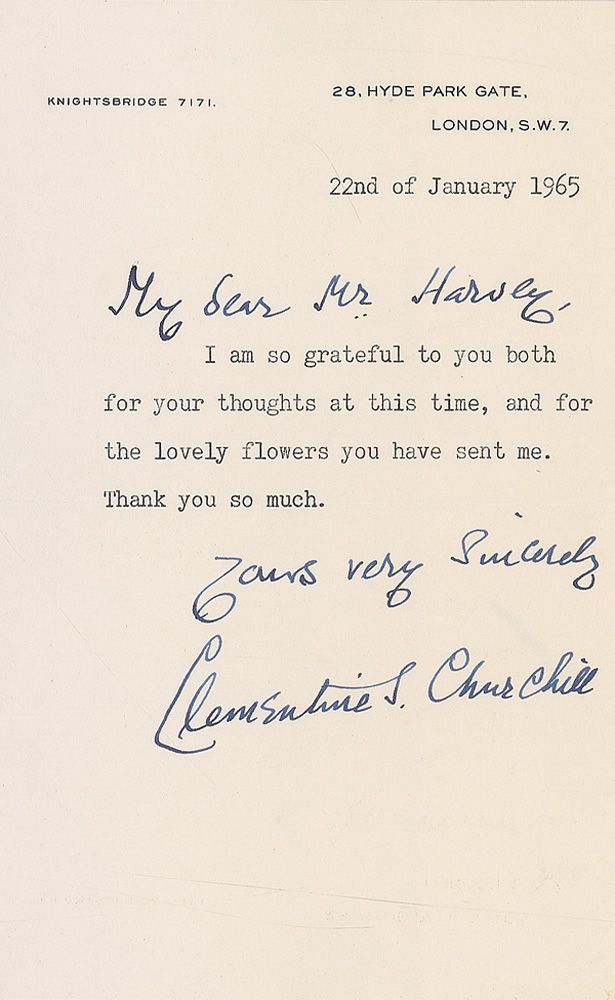 KNIGHTSBRIDGE 7171.
28, HYDE PARK GATE,
LONDON, S.W.7.
22nd of January 1965
My dear Mr Harvey,
I am so grateful to you both
for your thoughts at this time, and for
the lovely flowers you have sent me.
Thank you so much.
Yours very Sincerely
Clementine S. Churchill